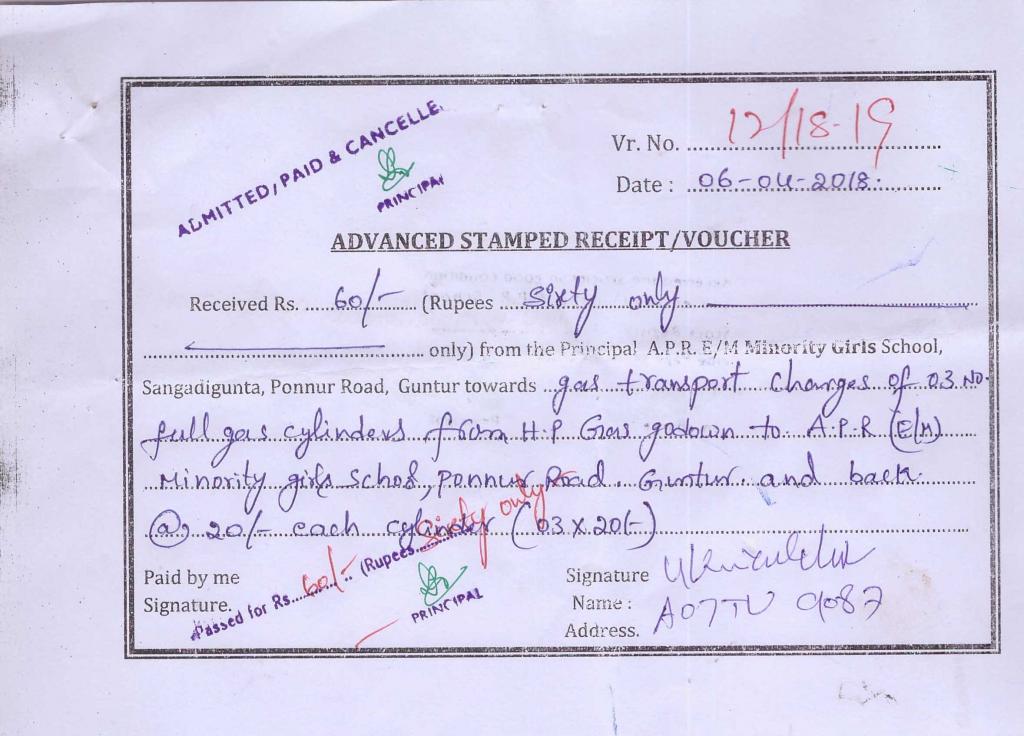 ADMITTED, PAID & CANCELLE
PRINCIPAL
Vr. No. 12/18-19
Date : 06-04-2018.
ADVANCED STAMPED RECEIPT/VOUCHER
Received Rs. 60/- (Rupees sixty only
only) from the Principal A.P.R. E/M Minority Girls School,
Sangadigunta, Ponnur Road, Guntur towards gas transport charges of 03 No.
full gas cylinders from H.P Gas godown to A.P.R (E/M)
Minority girls School, Ponnur Road. Guntur and back
@ 20/- each cylinder (03 x 20/-)
Passed for Rs. 60/- (Rupees Sixty only
PRINCIPAL
Paid by me
Signature.
Signature
Name : A07TU 9087
Address.